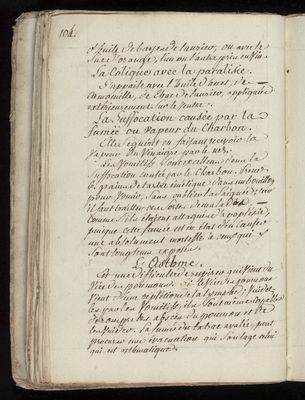 104.
d'huile de bayes de laurier, ou avec le
suc d'orange, l'un ou l'autre pris en vin.
La Colique avec la paralisie.
S'appaise avec l'huile d'hinet, de
Camomille, de de laurier, appliquée
extérieurement sur le ventre.
La Suffocation causée par la
fumée ou vapeur du Charbon.
Elle se guérit en faisant recevoir la
vapeur du vinaigre par le nez.
Les Vomitifs sont excellens dans la
suffocation causée par le charbon.
6. grains de tartre émétique dans un bouillon
pour vomir, sans oublier la saignée, et
il faut traitter ces sortes de malades
comme s'ils étoient attaqués d'apoplexie,
puisque cette fumée est en état d'en causer
une absolument mortelle à ceux qui y
sont longtems exposés.
L'Asthme.
Est une difficulté de respirer qui vient du
vice des poumons. Si le vice des poumons
vient d'une réplétion de la lymphe,
les pas les vomitifs, ils sont même capables
de rompre les abscès du poumon et de
les vuider. La fumée du tabac avalée, peut
procurer une évacuation qui soulage celui
qui est asthmatique.